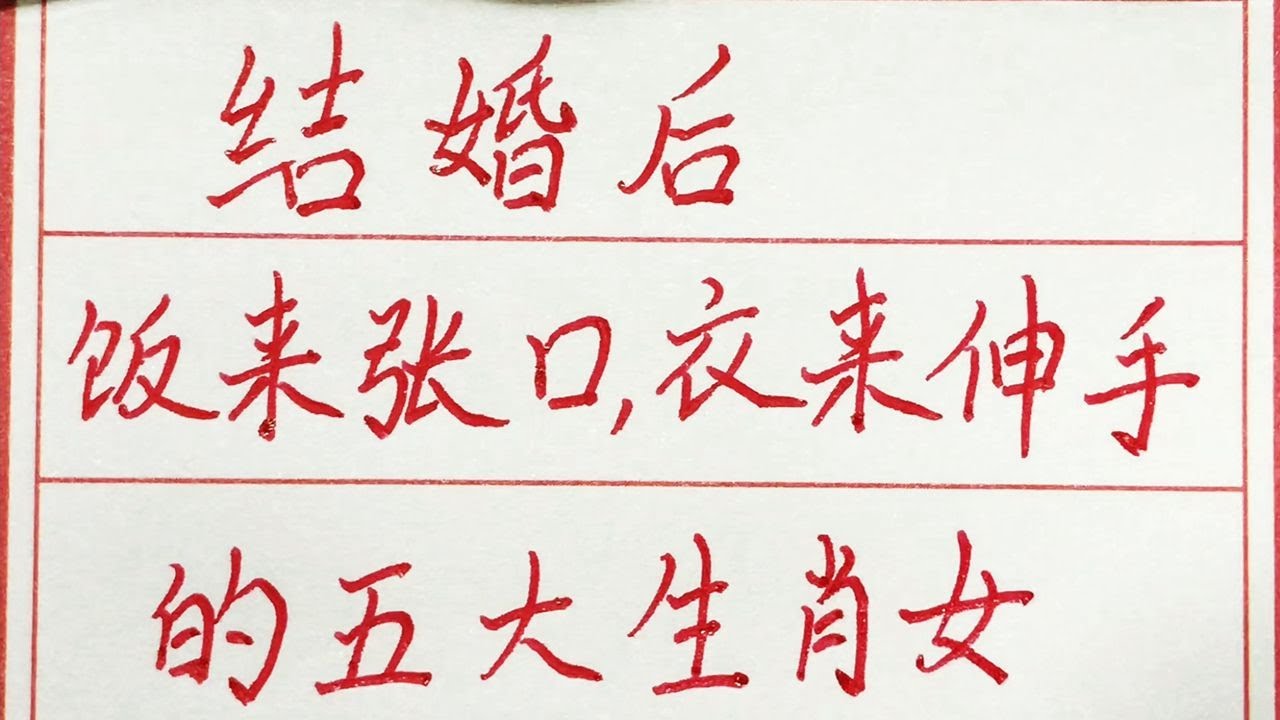 结婚后
饭来张口,衣来伸手
的五大生肖女